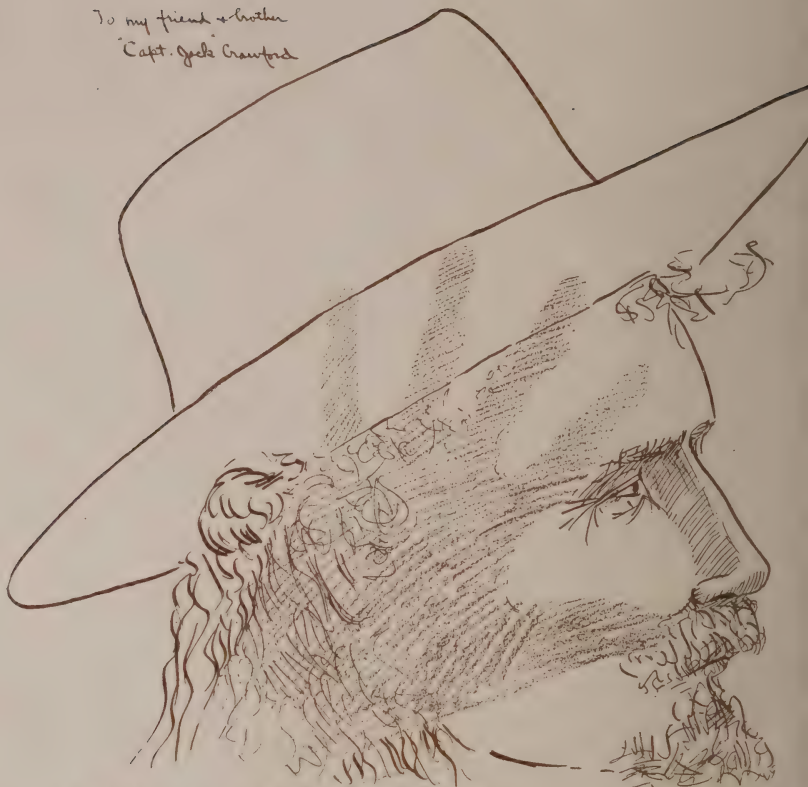 To my friend & brother
"Capt. Jack" Crawford